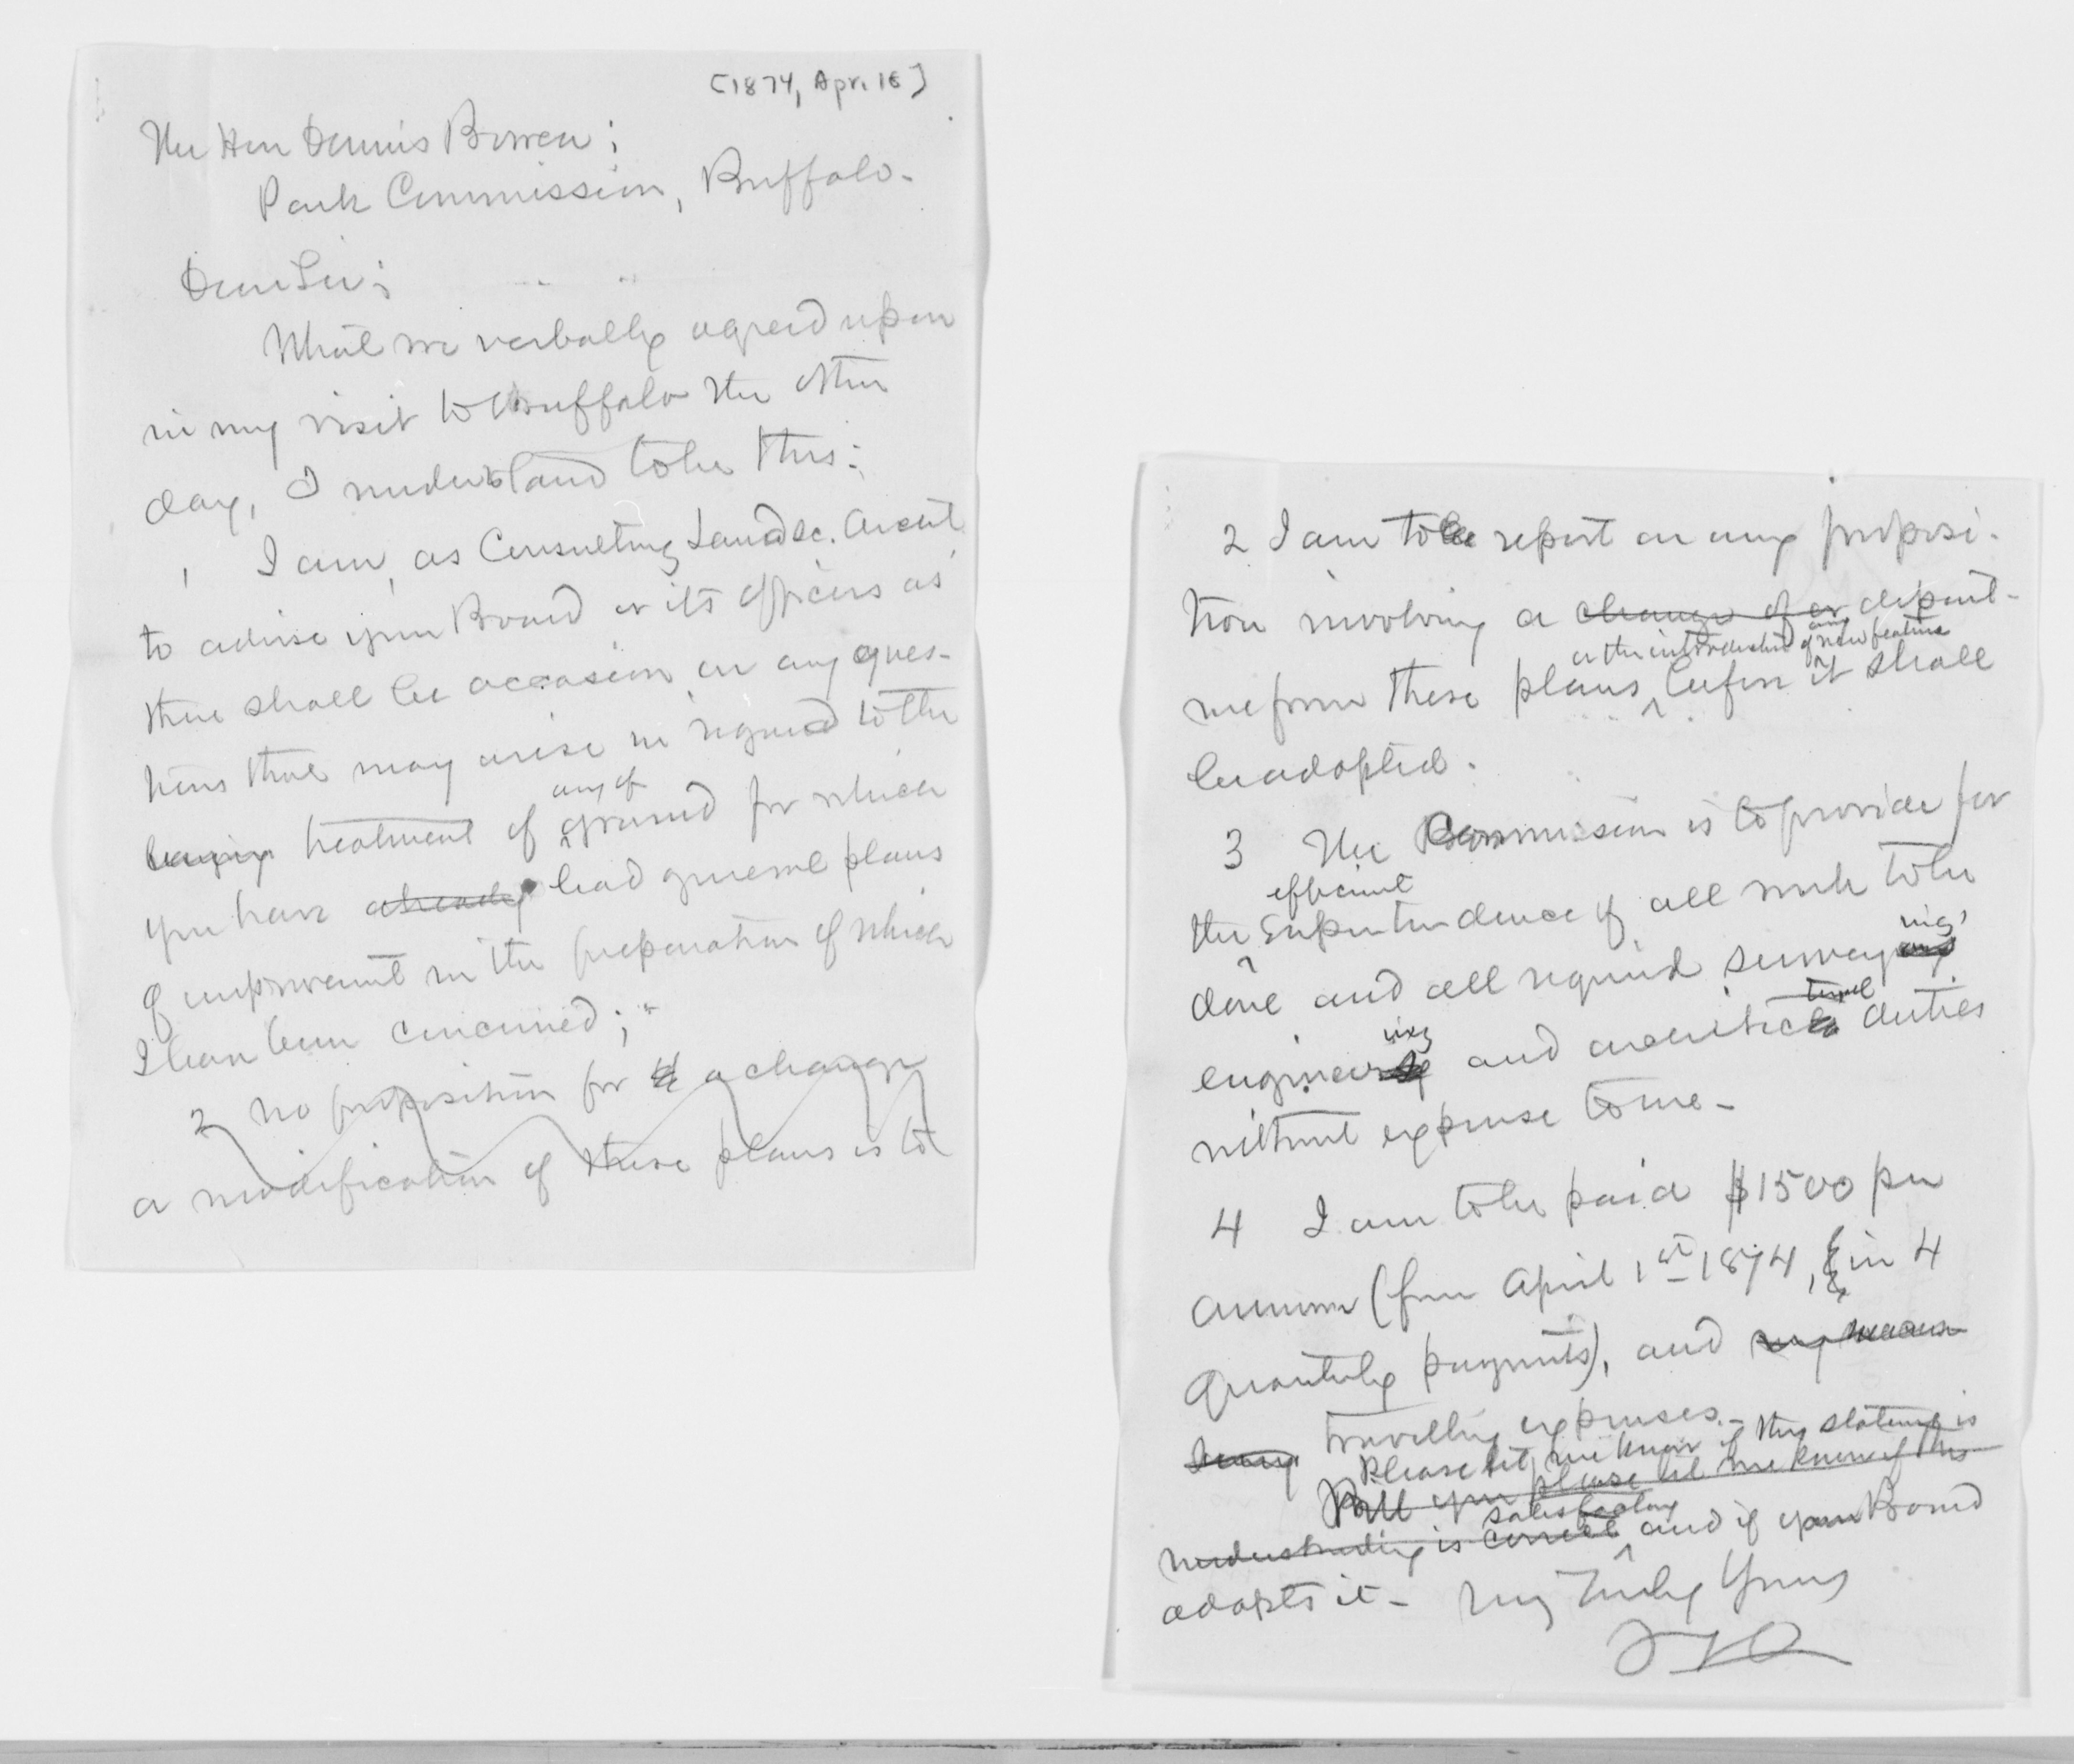 [1874, Apr. 16]
The Hon Dennis Bowen;
Park Commission, Buffalo-
Dear Sir;
What we verbally agreed upon
in my visit to Buffalo the other
day, I understand to be this:
1 I am, as Consulting Landsc. Archt
to advise your Board or its officers as
there shall be occasion on any ques-
tions that may arise in regard to the
treatment of any of ground for which
you have already had general plans
of improvemt in the preparation of which
I have been concerned;
2 no proposition for a change
a modification of these plans is to
2 I am to be report on any proposi-
tion involving a change of or depart-
or the introduction of any new feature
ure from these plans before it shall
be adopted.
3 The Commission is to provide for
efficient
the Superintendence of all work to be
done and all required surveying,
engineering and architectural duties
without expense to me-
4 I am to be paid $1500 per
annum (from April 1st 1874, in 4
quarterly payments), and my
travelling expenses.-
Please let me know if this statemt is
Will you please let me know if this
satisfactory
understanding is correct and if your Board
adopts it- Very Truly Yours
FLO